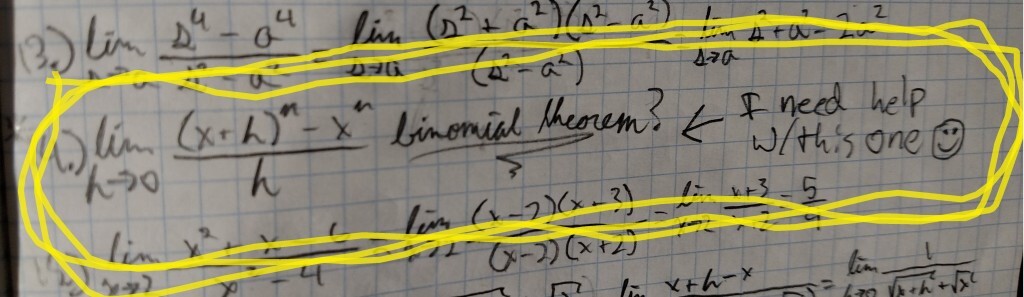 13.) lim s→a s⁴ - a⁴ / s² - a² = lim s→a (s² + a²)(s² - a²) / (s² - a²) = lim s→a s² + a² = 2a²
lim h→0 (x+h)ⁿ - xⁿ / h binomial theorem? ← I need help w/this one ☺
lim x→2 x² + x - 6 / x² - 4 = lim x→2 (x-2)(x+3) / (x-2)(x+2) = lim x→2 x+3 / x+2 = 5 / 4
lim x+h-x = lim h→0 1 / √x+h + √x